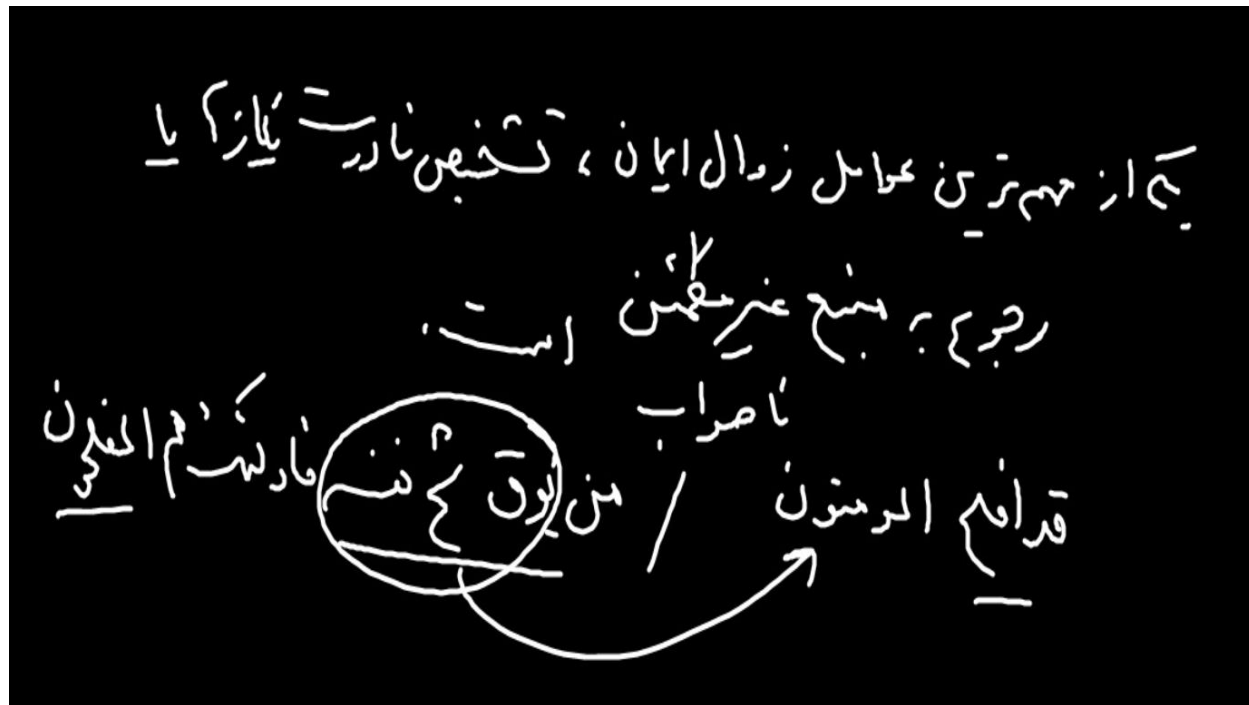 یکی از مهم‌ترین عوامل زوال ایران، تشخیص نادرست نیازها یا
رجوع به منبع غیر مطمئن است.
ناصواب
قد افلح المومنون / من یوق شح نفسه فاولئک هم المفلحون